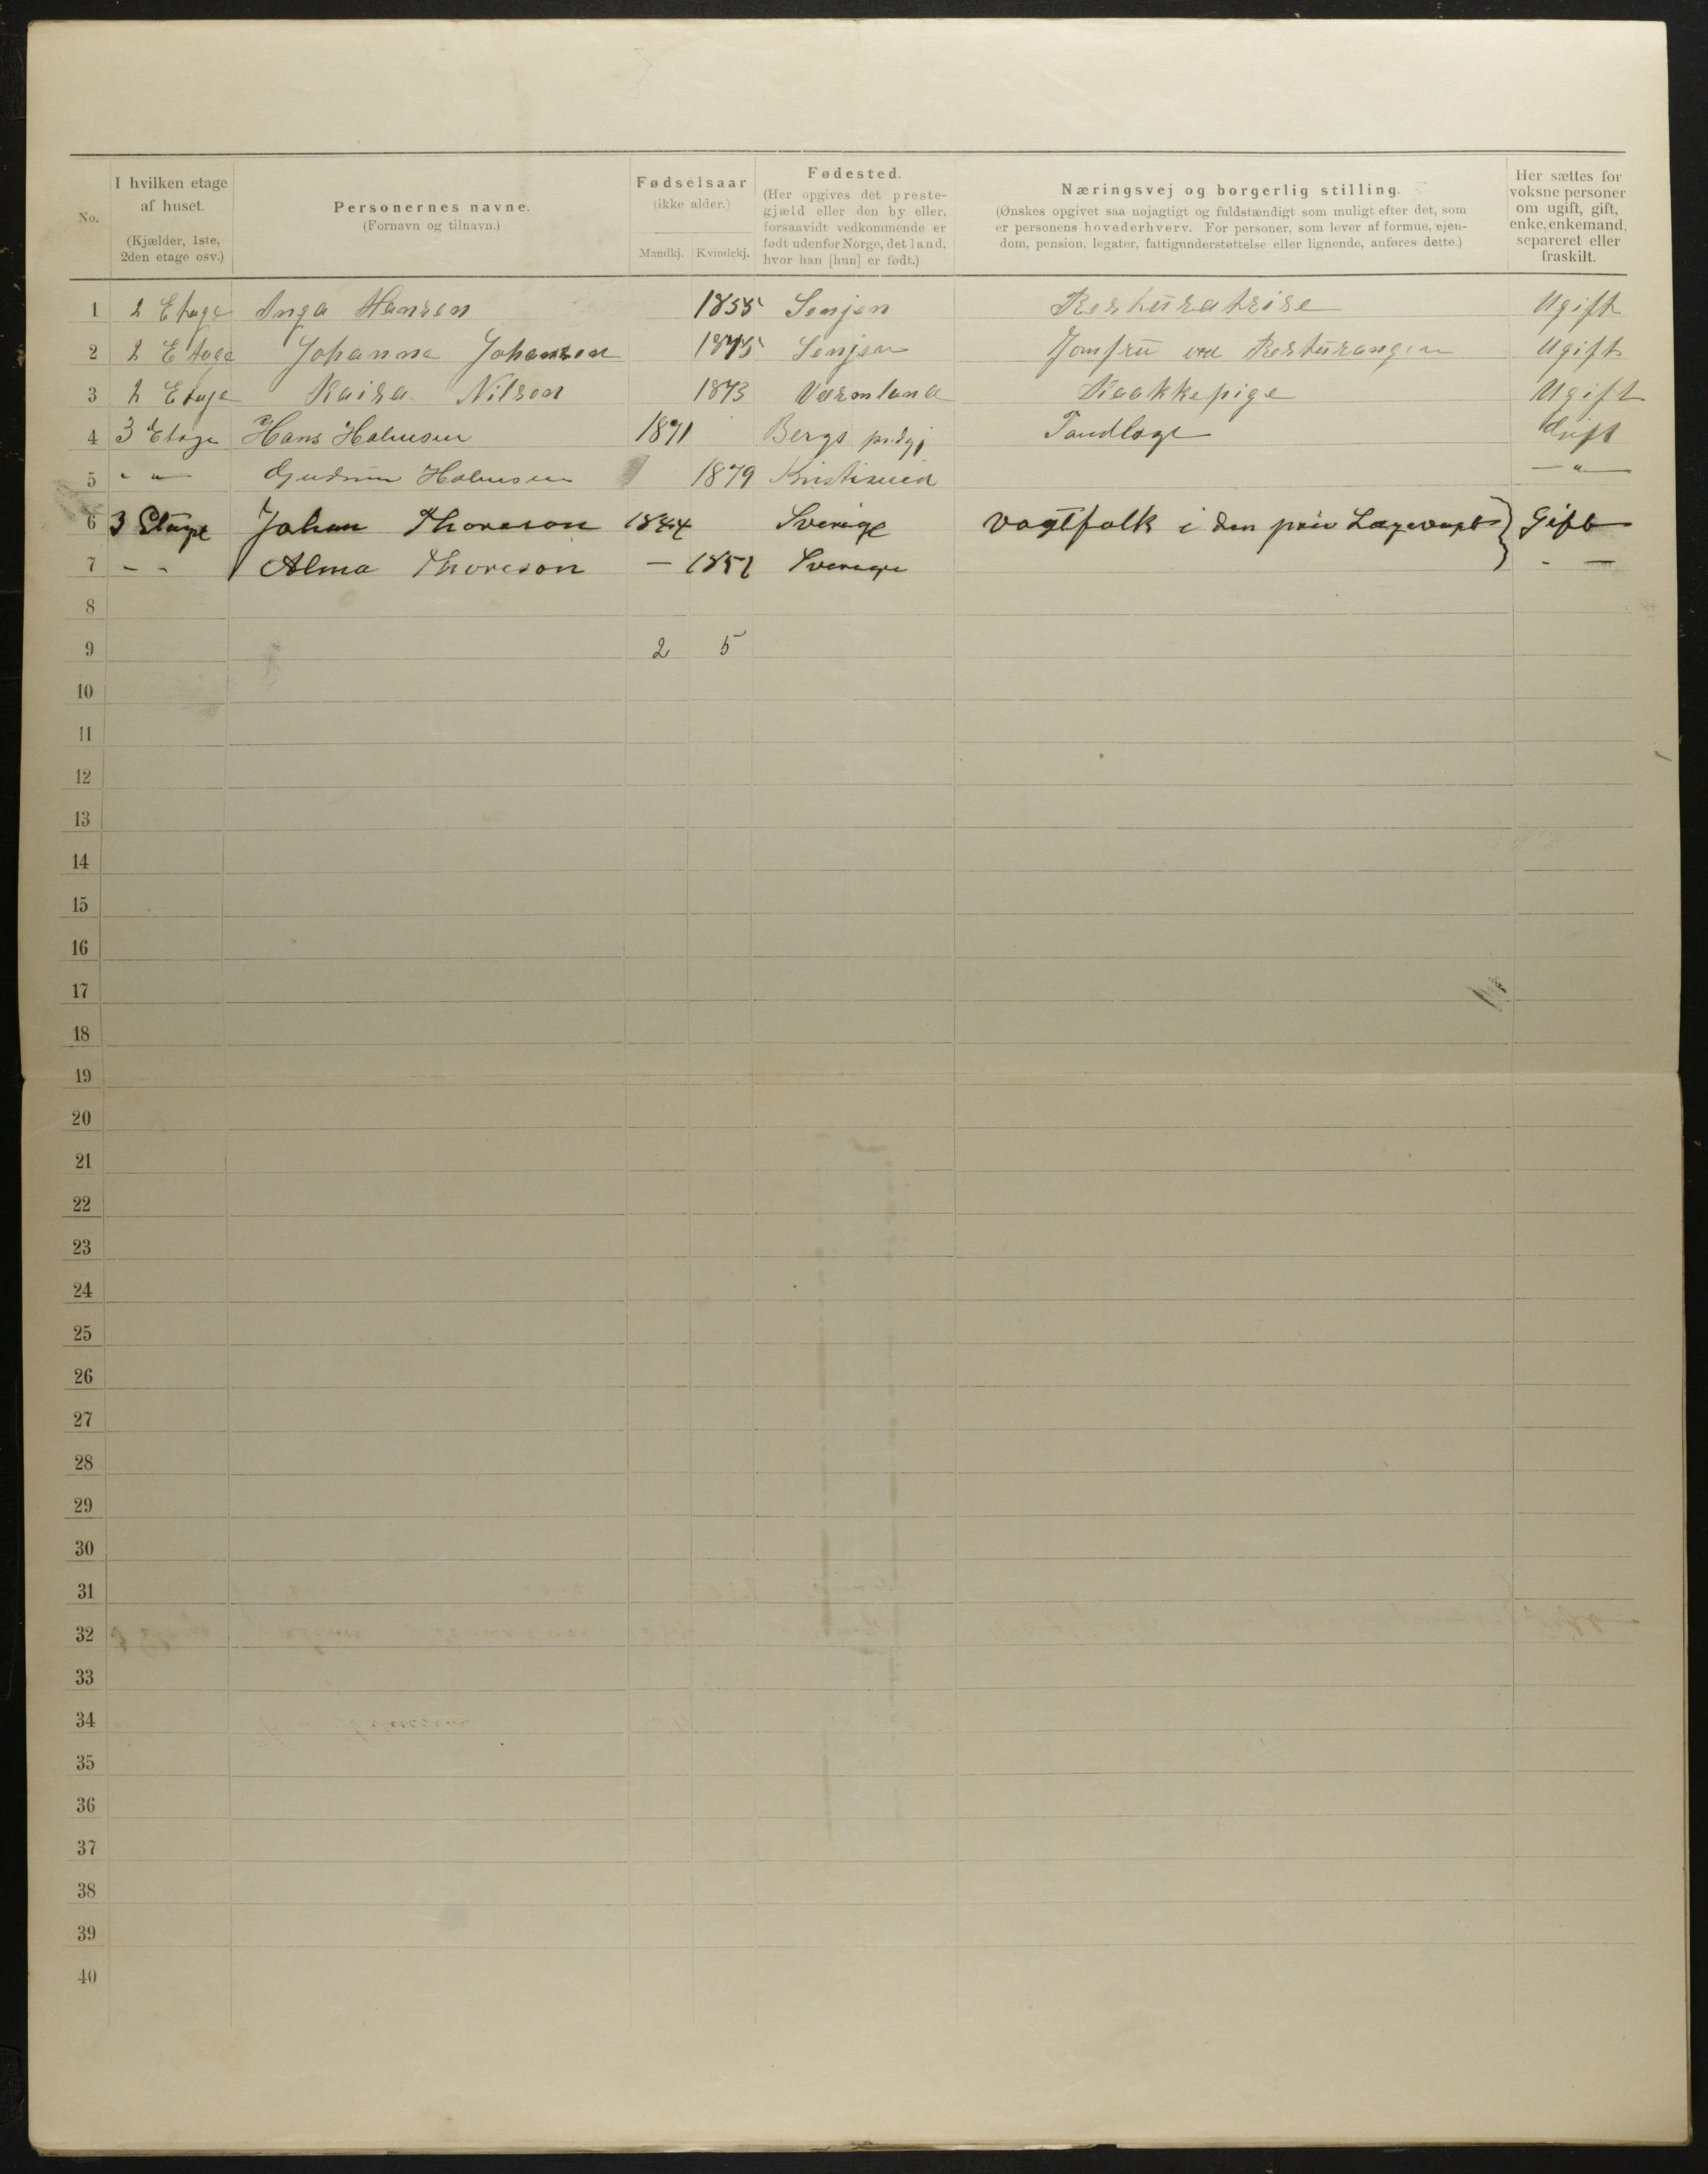 No.
I hvilken etage
af huset.
(Kjælder, 1ste,
2den etage osv.)
Personernes navne.
(Fornavn og tilnavn.)
Fødselsaar
(ikke alder.)
Mandkj. Kvindekj.
Fødested.
(Her opgives det preste-
gjæld eller den by eller,
forsaavidt vedkommende er
født udenfor Norge, det land,
hvor han [hun] er født.)
Næringsvej og borgerlig stilling.
(Ønskes opgivet saa nøjagtigt og fuldstændigt som muligt efter det, som
er personens hovederhverv. For personer, som lever af formue, ejen-
dom, pension, legater, fattigunderstøttelse eller lignende, anføres dette.)
Her sættes for
voksne personer
om ugift, gift,
enke, enkemand,
separeret eller
fraskilt.
1 2 Etage Inga Hansen 1855 Senjen Resturatrise Ugift
2 2 Etage Johanna Johansen 1875 Senjen Jomfru ved Resturangen Ugift
3 2 Etage Kaisa Nilson 1873 Värmland Kaakkepige Ugift
4 3 Etage Hans Holmsen 1871 Bergs Tandlæge Gift
5 " " Gudrun Holmsen 1879 Kristiania — " —
6 3 Etage Johan Thoreson 1844 Sverige Vagtfolk i den priv Lægevagt } Gift
7 - - Alma Thoreson — 1851 Sverige - —
8
9 2 5
10
11
12
13
14
15
16
17
18
19
20
21
22
23
24
25
26
27
28
29
30
31
32
33
34
35
36
37
38
39
40